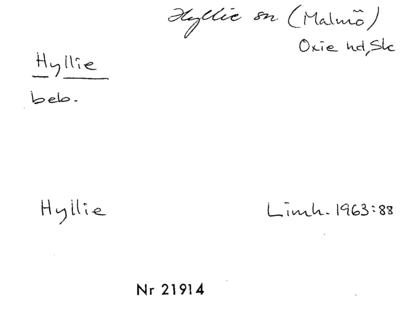 Hyllie sn (Malmö)
Oxie hd, Sk
Hyllie
beb.
Hyllie Limh. 1963:88
Nr 21914